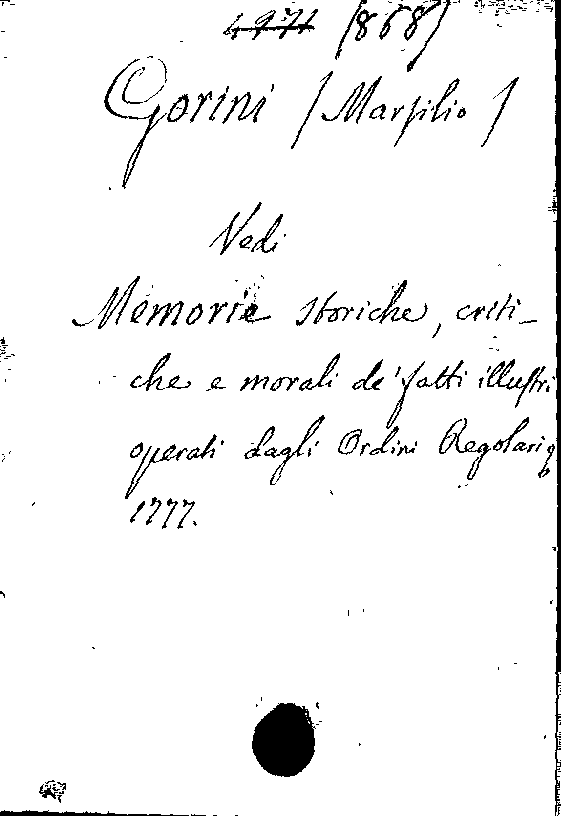 4971 (868)
Gorini (Marsilio)
Vedi
Memorie storiche, criti-
che e morali de' fatti illustri
operati dagli Ordini Regolari
1777.